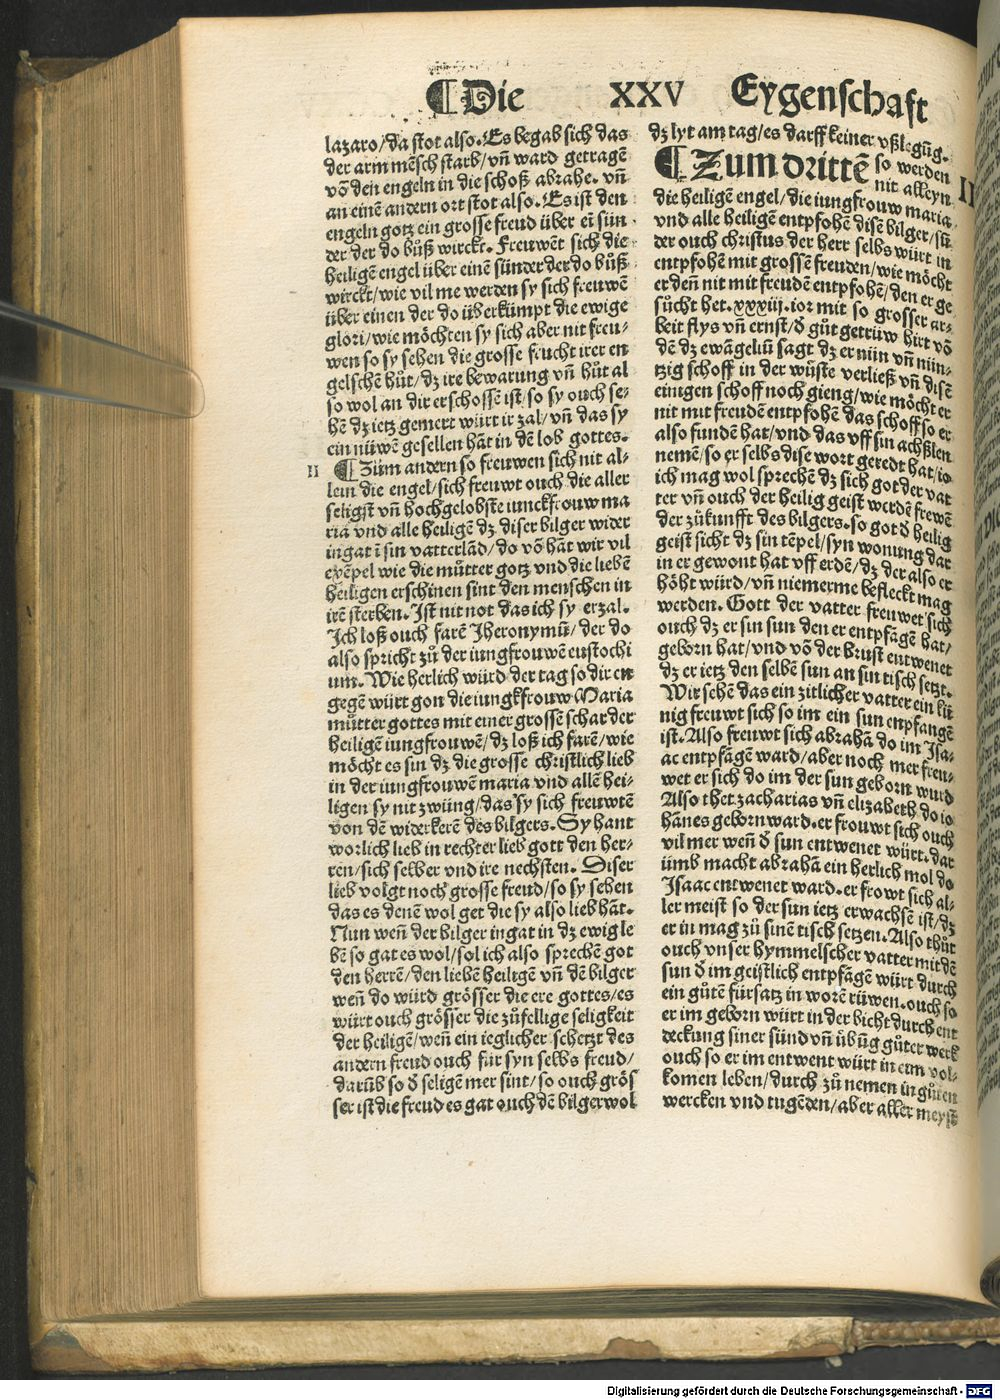 ¶Die XXV Eygenschaft
lazaro/da stot also. Es begab sich das
der arm mēsch starb/vn̄ ward getragē
vō den engeln in die schoß abrahe. vn̄
an einē andern ort stot also. Es ist den
engeln gotz ein grosse freud über ei sün
der der do bůß wirckt. Freuwēt sich die
heiligē engel über einē sünder der do bůß
wirckt/wie vil me werden sy sich freuwē
über einen der do überkümpt die ewige
glori/wie möchten sy sich aber nit freu-
wen so sy sehen die grosse frucht irer en
gelschē hůt/dz ire bewarung vn̄ hůt al
so wol an dir erschossē ist/so sy ouch se-
hē dz ietz gemert würt ir zal/vn̄ das sy
ein nüwē gesellen hāt in dē lob gottes.
II ¶Zům andern so freuwen sich nit al-
lein die engel/sich freuwt ouch die aller
seligst vn̄ hochgelobste iunckfrouw ma
ria vnd alle heiligē dz diser bilger wider
ingat ī sin vatterlād/do vō hāt wir vil
exēpel wie die můtter gotz vnd die liebē
heiligen erschinen sint den menschen in
irē sterben. Ist nit not das ich sy erzal.
Ich loß ouch farē Jheronymū/der do
also spricht zů der iungfrouwē eustochi
um. Wie herlich würd der tag so dir en
gegē würt gon die iungkfrouw Maria
můtter gottes mit einer grossē schar der
heiligē iungfrouwē/dz loß ich farē/wie
möcht es sin dz die grosse christlich lieb
in der iungfrouwē maria vnd allē hei-
ligen sy nit zwüng/das sy sich freuwtē
von dē widerkerē des bilgers. Sy hant
worlich lieb in rechter lieb gott den her-
ren/sich selber vnd ire nechsten. Diser
lieb volgt noch grosse freud/so sy sehen
das es denē wol get die sy also lieb hāt.
Nun wen̄ der bilger ingat in dz ewig le
bē so gat es wol/sol ich also sprechē got
den herrē/den liebē heiligē vn̄ dē bilger
wen̄ do würd grösser die ere gottes/es
würt ouch grösser die zůfellige seligkeit
der heiligē/wen̄ ein ieglicher schetzt des
andern freud ouch für syn selbs freud/
darūb so d̄ seligē mer sint/so ouch grös
ser ist die freud es gat ouch dē bilger wol
dz lyt am tag/es darff keiner vßlegūg.
¶Zum drittē so werden
nit alleyn II
die heiligē engel/die iungfrouw maria
vnd alle heiligē entpfohē disē bilger/sū
der ouch christus der herr selbs würt in
entpfohē mit grossē freuden/wie möcht
er den̄ nit mit freudē entpfohē/den er ge
sůcht het.xxxiij.ior mit so grosser ar-
beit flys vn̄ ernst/d̄ gůt getrüw hirt vō
dē dz ewāgeliū sagt dz er nün vn̄ nün-
tzig schoff in der wüste verließ vn̄ disē
einigen schoff noch gieng/wie möcht er
nit mit freudē entpfohē das schoff so er
also fundē hat/vnd das vff sin achßlen
nemē/so er selbs dise wort geredt hat/io
ich mag wol sprechē dz sich got der vat
ter vn̄ ouch der heilig geist werdē frewē
der zůkunfft des bilgers. so got d̄ heilig
geist sicht dz sin tēpel/syn wonung dar
in er gewont hat vff erdē/dz der also er
höht würd/vn̄ niemerme befleckt mag
werden. Gott der vatter freuwet sich
ouch dz er sin sun den er entpfāgē hat/
geborn hat/vnd vō der brust entwenet
dz er ietz den selbē sun an sin tisch setzt.
Wir sehē das ein zitlicher vatter ein kü
nig freuwt sich so im ein sun enpfangē
ist. Also freuwt sich abrahā do im Isa-
ac entpfāgē ward/aber noch mer freu-
wet er sich do im der sun geborn wurd
Also thet zacharias vn̄ elizabeth do io
hānes geborn ward. er frouwt sich ouch
vil mer wen̄ d̄ sun entwenet würt. dar
ümb macht abrahā ein herlich mol do
Isaac entwenet ward. er frowt sich al-
ler meist so der sun ietz erwachsē ist/dz
er in mag zů sinē tisch setzen. Also thůt
ouch vnser hymmelscher vatter mit dē
sun d̄ im geistlich entpfāgē würt durch
ein gůtē fürsatz in worē rüwen. ouch so
er im geborn würt in der bicht durch ent
deckung siner sünd vn̄ übūg gůter werk
ouch so er im entwent würt in eim vol-
komen leben/durch zů nemen in gůten
wercken vnd tugēden/aber aller meyst
Digitalisierung gefördert durch die Deutsche Forschungsgemeinschaft - DFG